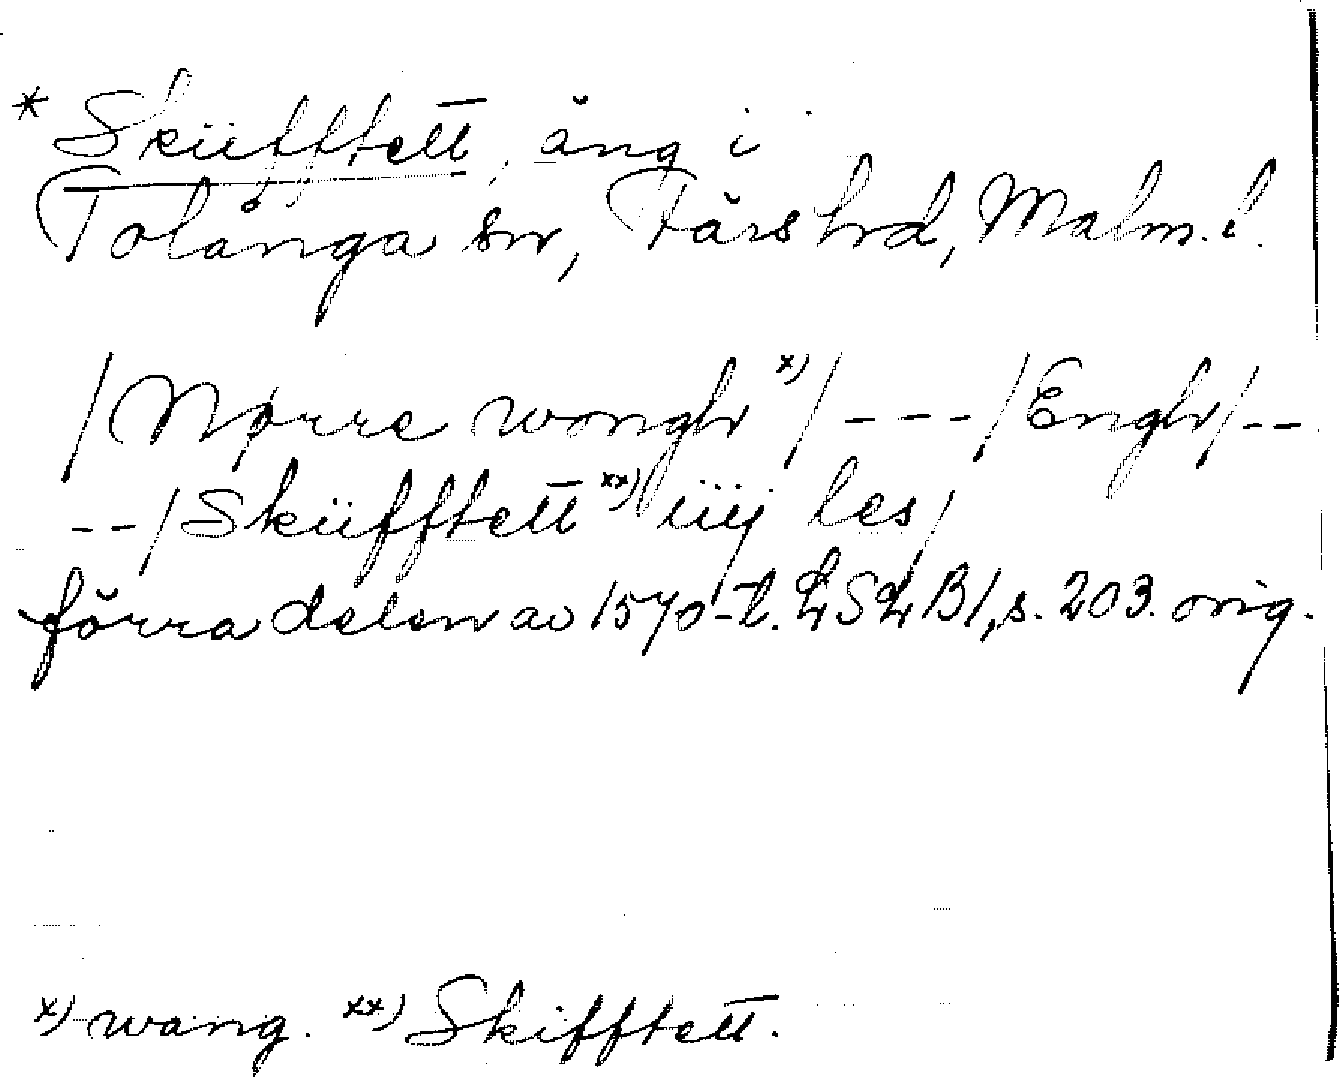 * Skiifftett, äng i
Tolånga sn, Färs hrd, Malm. l.
/Nørre wongh x)/---/Engh/--
--/Skiifftett xx) iiij les/
förra delen av 1570-t. LSLB1, s. 203. orig.
x) wang. xx) Skifftett.